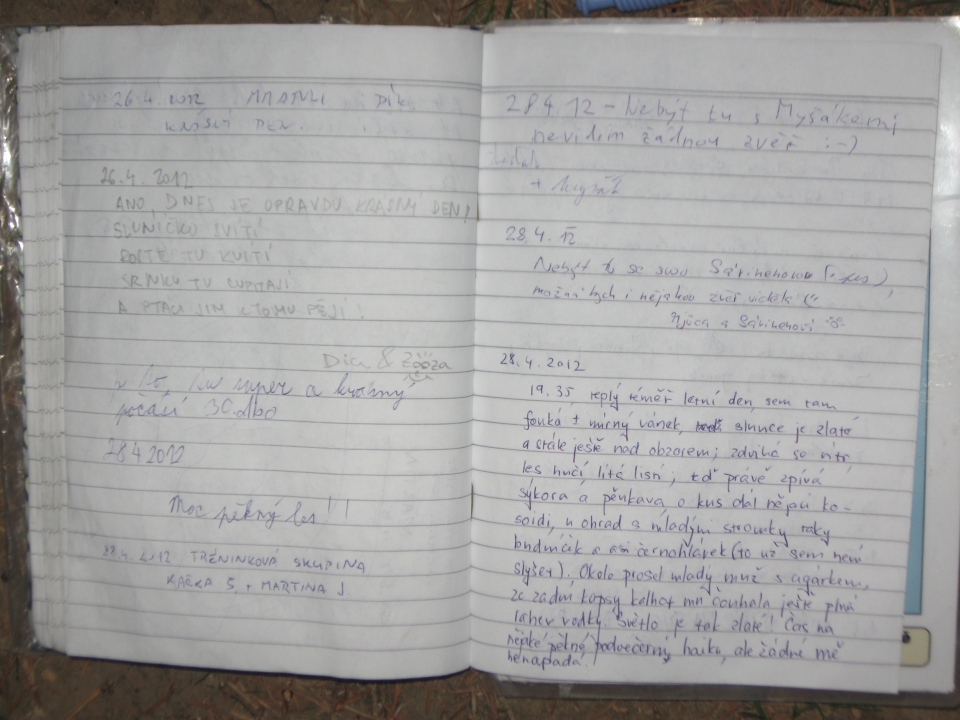 26.4.2012 DÍK
KRÁSNÝ DEN.
26.4.2012
ANO, DNES JE OPRAVDU KRÁSNÝ DEN!
SLUNÍČKO SVÍTÍ
KVÍTÍ
SRNKY TU CUPITAJÍ
A PTÁCI JIM K TOMU PĚJÍ!
& Zóóza
super a krásný
počasí 30.dbo
28.4.2012
Moc pěkný les!!
28.4.2012 TRÉNINKOVÁ SKUPINA
KAČKA S. + MARTINA J
28.4.12 - Nebýt tu s Myšákem
nevidím žádnou zvěř :-)
+ Myšák
28.4.12
Nebýt tu se svou
možná bych i nějakou zvěř viděla
a
28.4.2012
19,35 teplý téměř letní den, sem tam
fouká ± mírný vánek, slunce je zlaté
a stále ještě nad obzorem; zdvihá se vítr
les hučí listí; teď právě zpívá
sýkora a pěnkava, o kus dál nějací ko-
soidi, u ohrad s mladými stromky taky
budníček a asi černohlávek (to už sem není
slyšet). Okolo prošel mladý muž s cigárkem,
ze zadní kapsy kalhot mu čouhala ještě plná
lahev vodky. Světlo je tak zlaté! Čas na
nějaké pěkné podvečerní haiku, ale žádné mě
nenapadá.